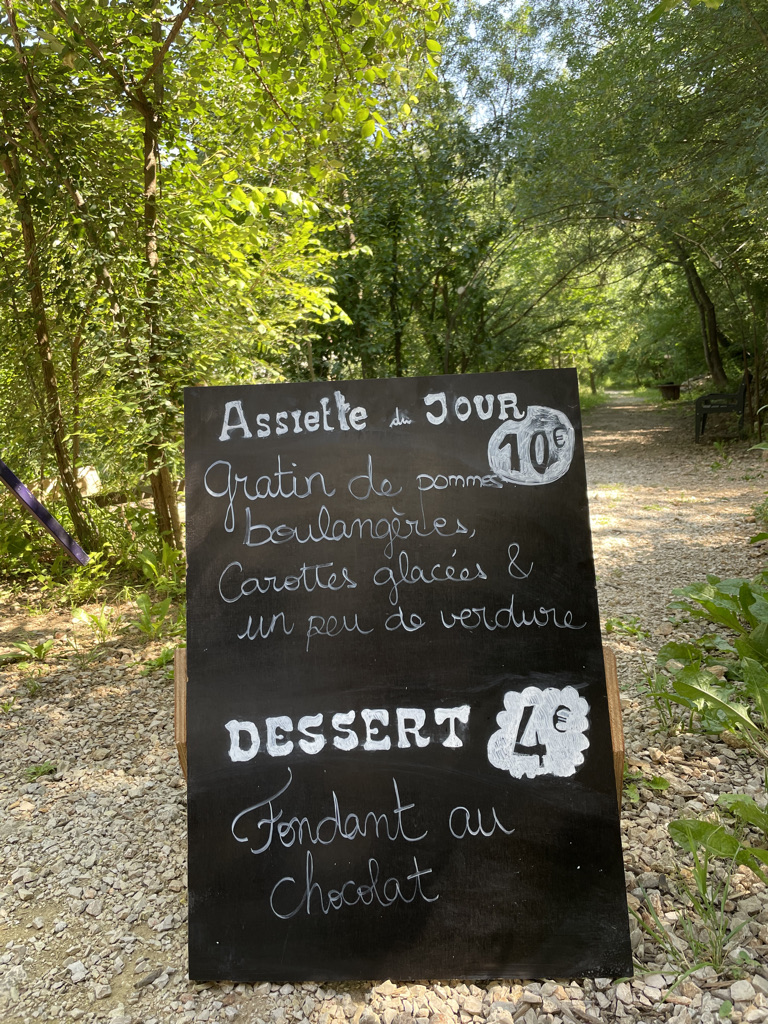 Assiette du JOUR
10€
Gratin de pommes
boulangères,
Carottes glacées &
un peu de verdure
DESSERT 4€
Fondant au
chocolat